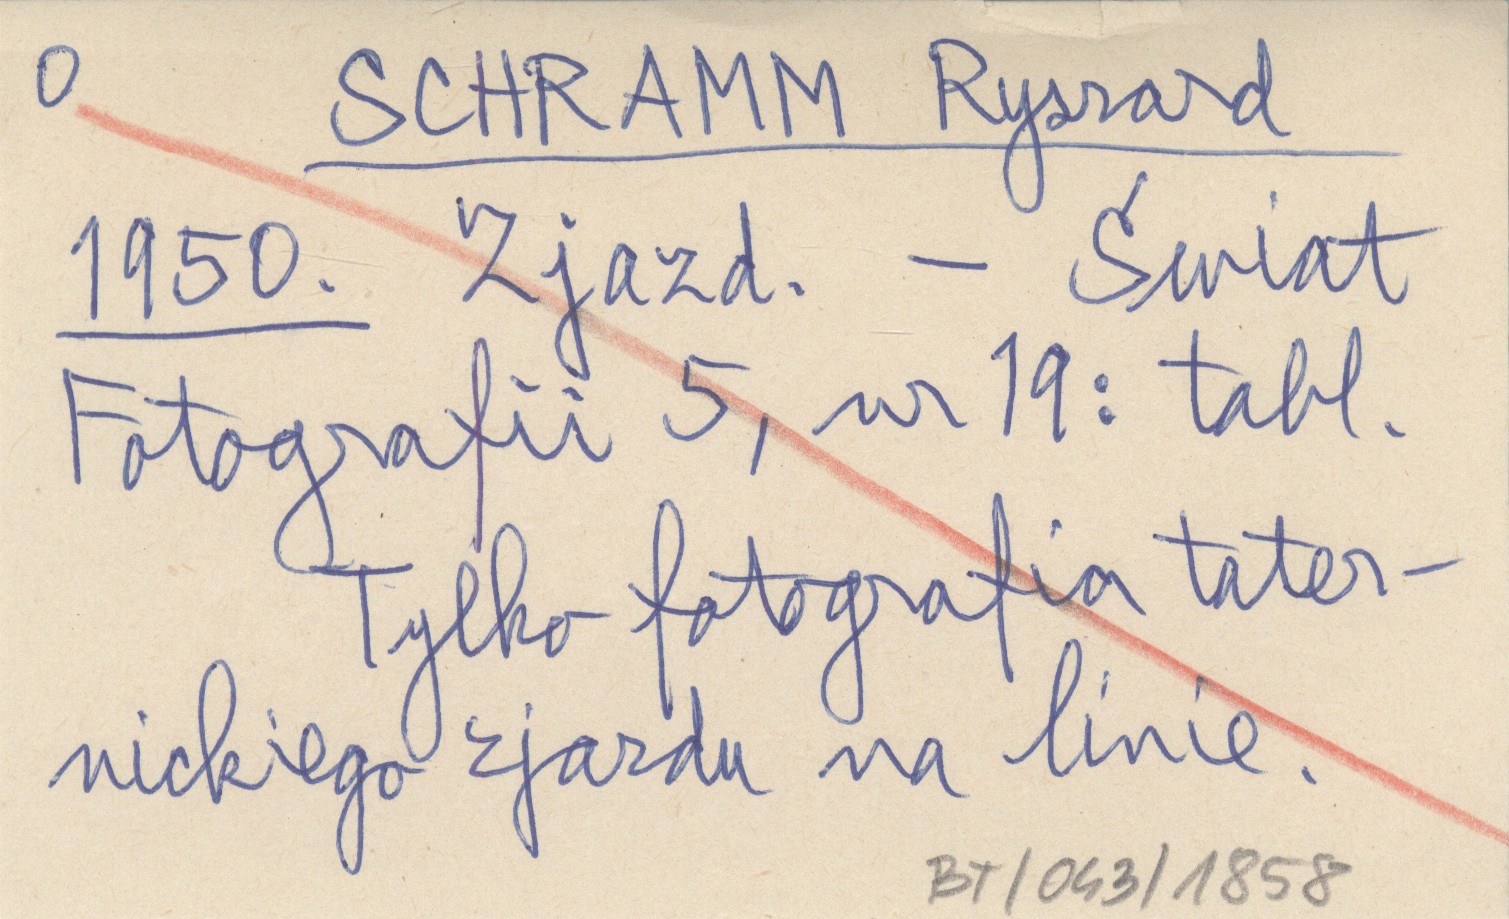 O SCHRAMM Ryszard
1950. Zjazd. – Świat
Fotografii 5, nr 19: tabl.
Tylko fotografia tater-
nickiego zjazdu na linie.
BT/043/1858